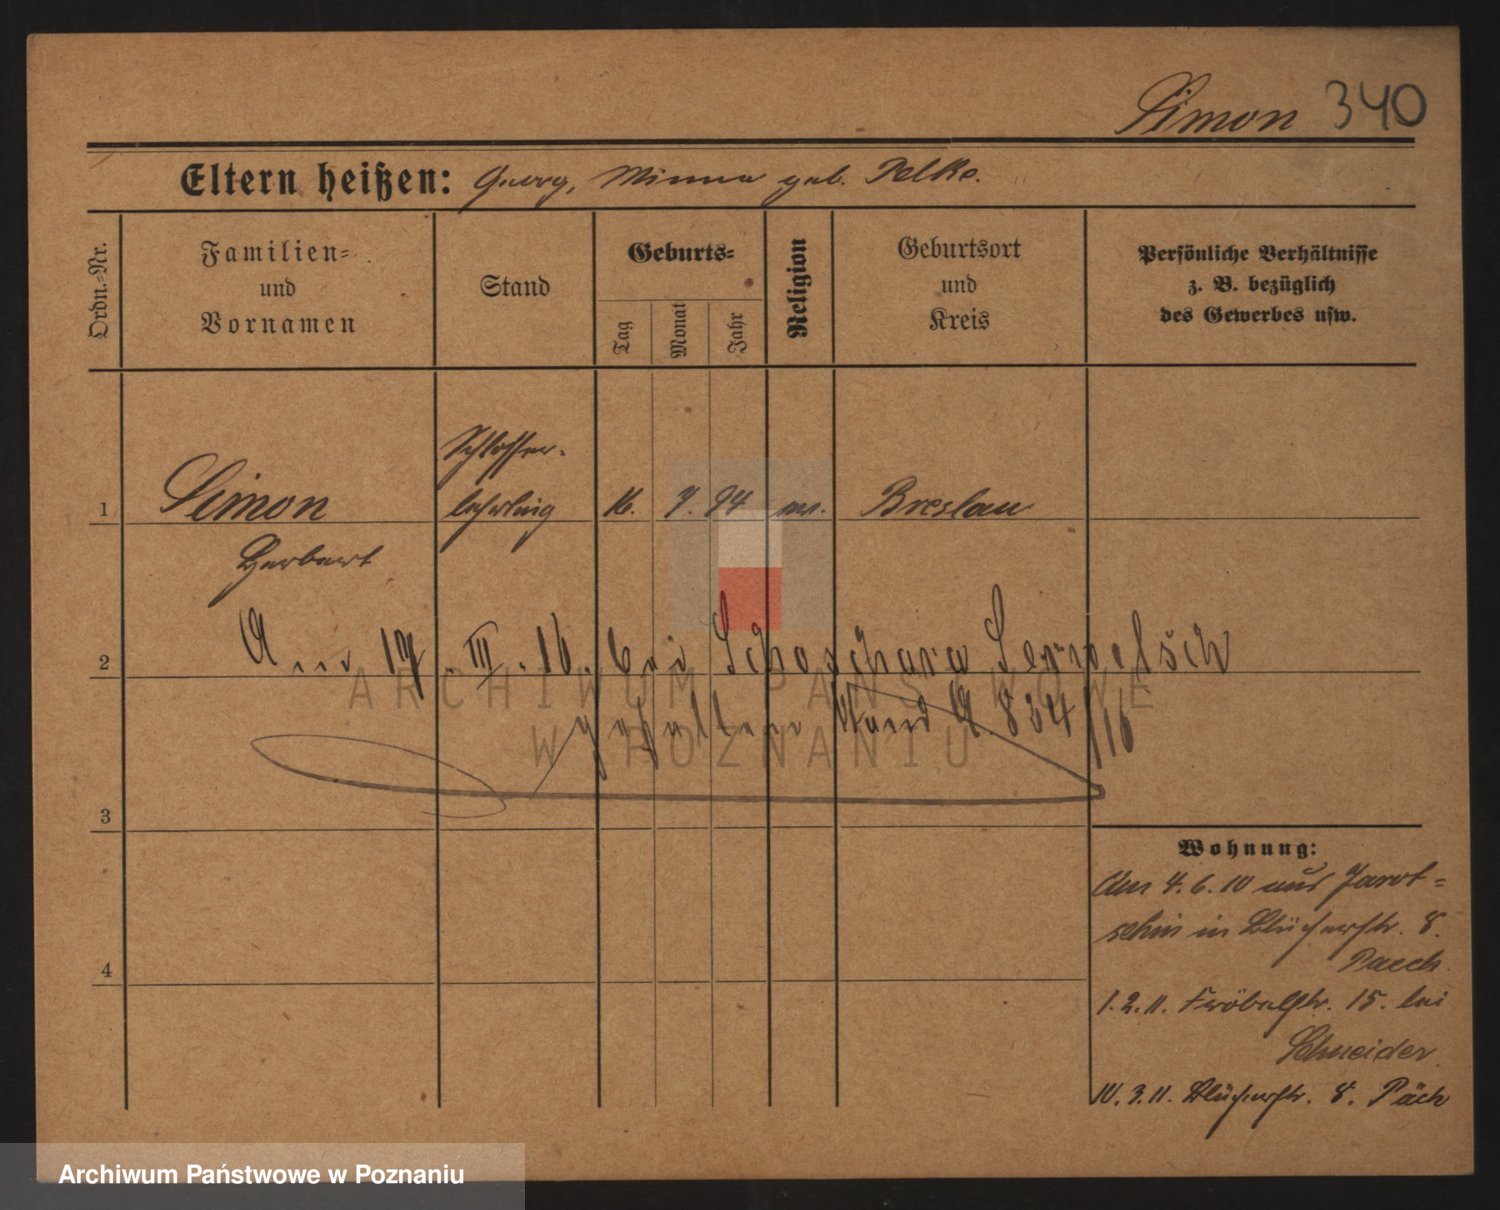 Simon 340
Eltern heißen: Georg, Minna geb. Pelke.
Ordn.-Nr.
Familien-
und
Vornamen
Stand
Geburts-
Tag
Monat
Jahr
Religion
Geburtsort
und
Kreis
Persönliche Verhältnisse
z. B. bezüglich
des Gewerbes usw.
Schlosser-
1 Simon lehrling 16. 7. 94 Breslau
Herbert
2 Am 17. III. 16. bei
A. 834/16
3
Wohnung:
Am 4.6.10 aus Jarot-
schin in Blücherstr. 8.
Paech.
1.2.11. Fröbelstr. 15. bei
Schneider.
10.3.11. Blücherstr. 8. Päch
4
ARCHIWUM PAŃSTWOWE
W POZNANIU
Archiwum Państwowe w Poznaniu